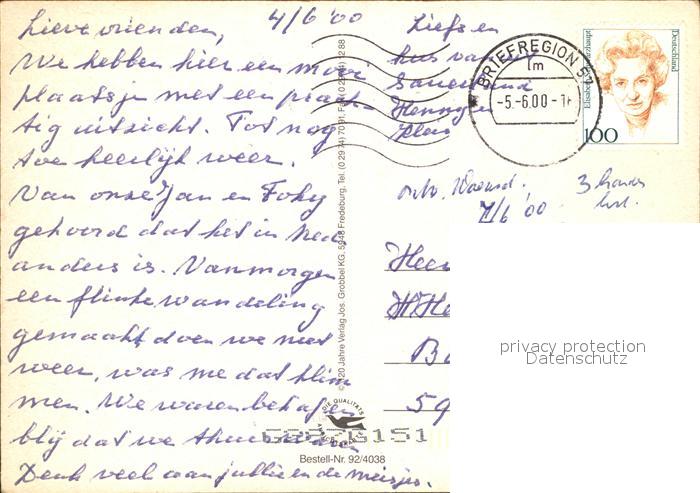 4/6 '00
Lieve vrienden,
We hebben hier een mooi
plaatsje met een prach-
tig uitzicht. Tot nog
toe heerlijk weer.
Van onze Jan en Foky
gehoord dat het in Ned
anders is. Vanmorgen
een flinke wandeling
gemaakt doen we met
weer, was me dat klim
men. We waren
blij dat we thuis
Denk veel aan jullie en de meisjes.
Liefs en
kus van uit
Sauerland
Henny en
BRIEFREGION 57
1m
-5.-6.00-1
Elisabeth Schwarzhaupt
Deutschland
100
ontv. Woensd.
7/6 '00
3
Heer
H.
B
59
© 20 Jahre Verlag Jos. Grobbel KG, 5948 Fredeburg, Tel. (0 29 74) 70 91, Fax (0 29 74) 12 88
DIE QUALITÄTS
6151
Bestell-Nr. 92/4038
privacy protection
Datenschutz